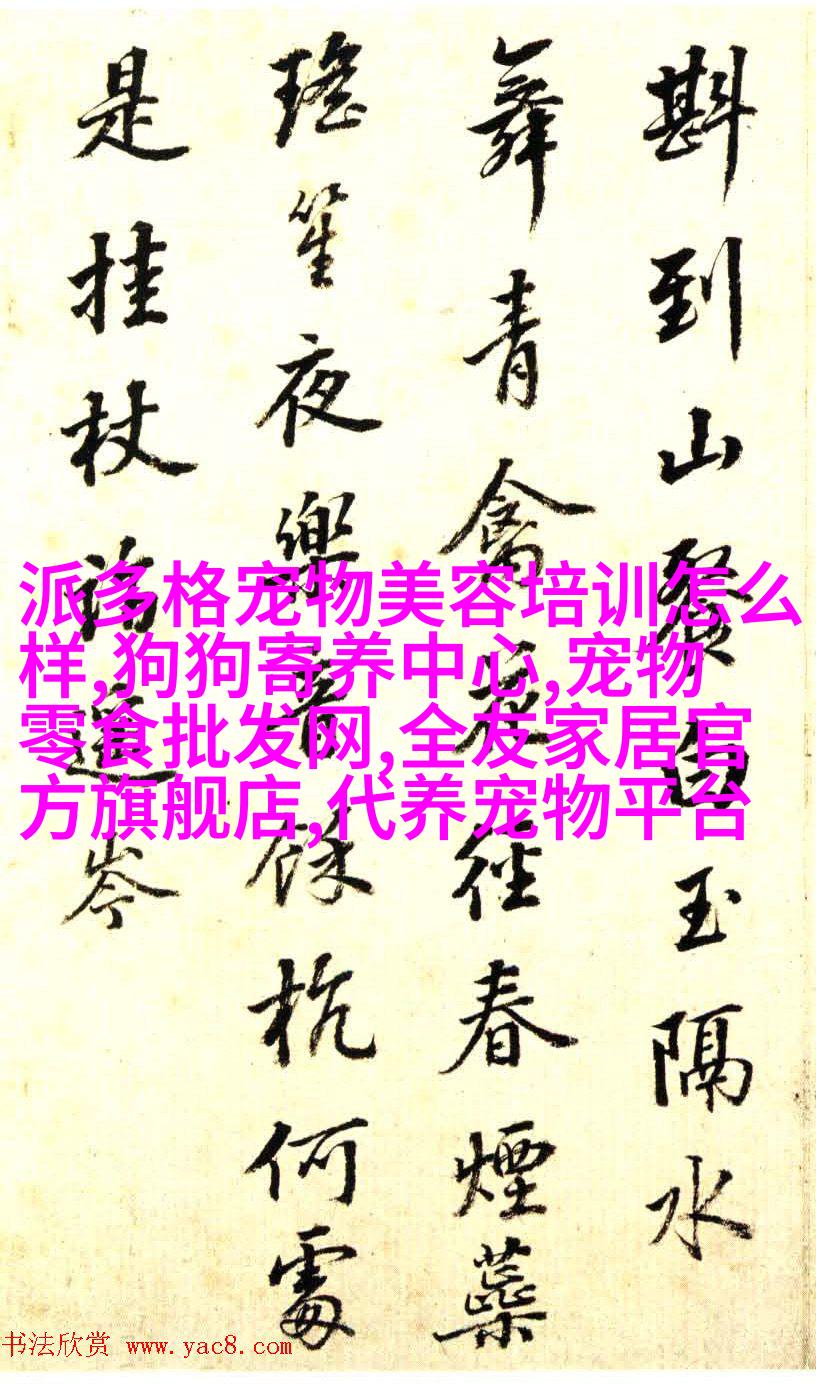 斟到山醪白玉隔水
舞青禽徑春煙蘂
瑤笙夜樂音餘杭何處
是挂杖遥岑
派多格宠物美容培训怎么
样,狗狗寄养中心,宠物
零食批发网,全友家居官
方旗舰店,代养宠物平台
书法欣赏 www.yac8.com